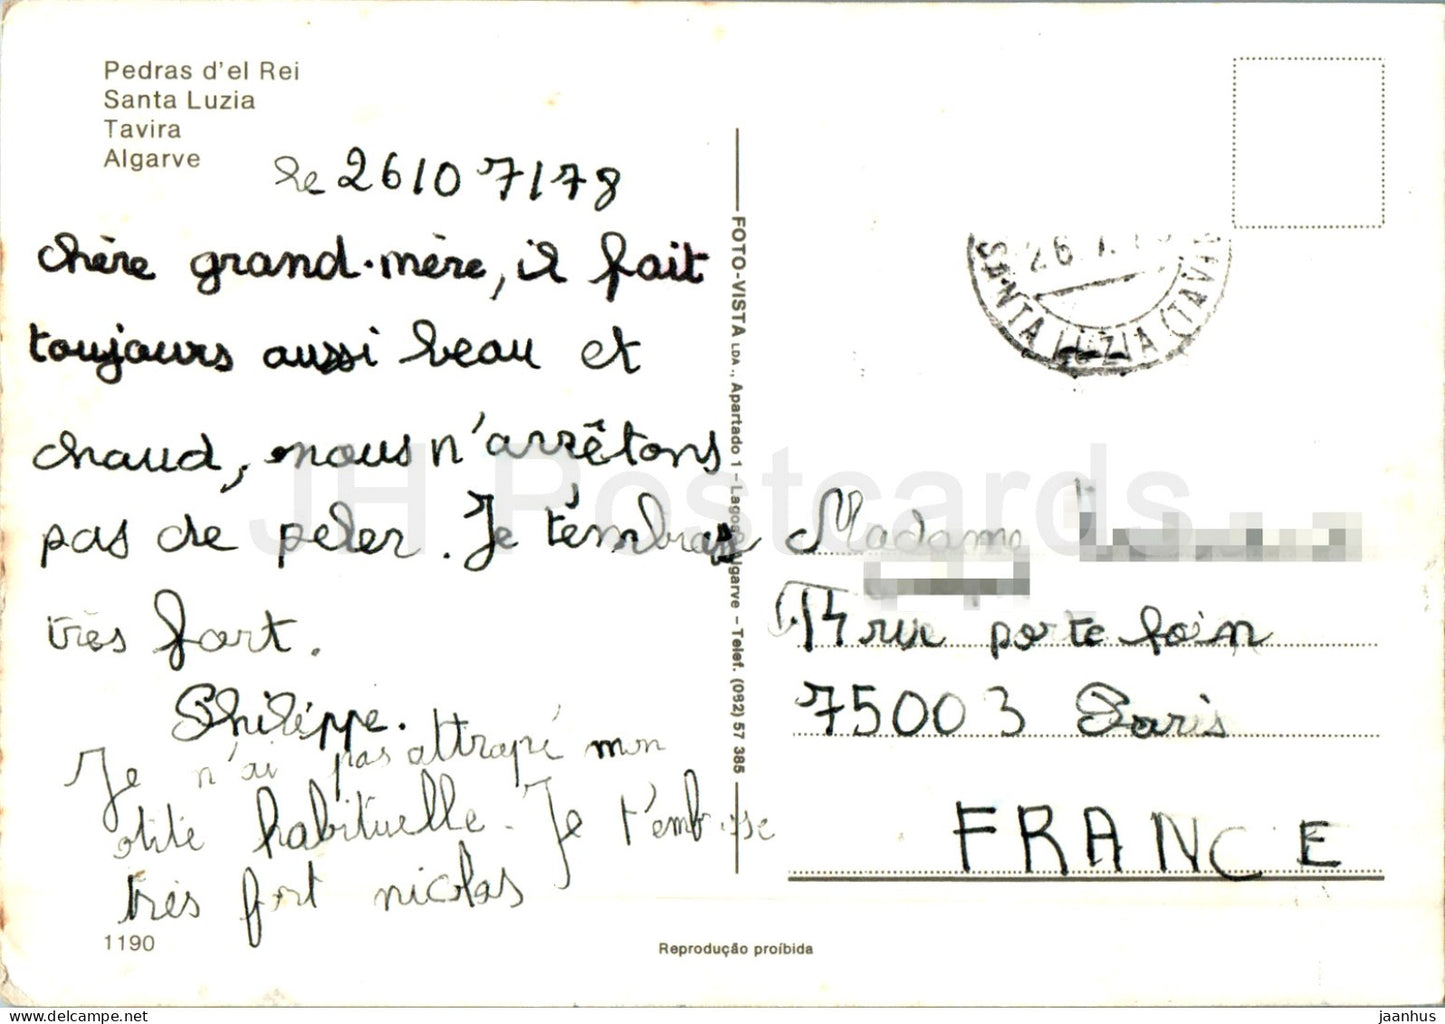 Pedras d'el Rei
Santa Luzia
Tavira
Algarve
le 26/07/78
chère grand-mère, il fait
toujours aussi beau et
chaud, nous n'arrêtons
pas de peler. Je t'embrasse
très fort.
Philippe.
Je n'ai pas attrapé mon
otite habituelle. Je t'embrasse
très fort nicolas
1190
FOTO-VISTA LDA., Apartado 1 - Lagos - Algarve - Telef. (082) 57 385
Reprodução proíbida
26.7.
SANTA LUZIA (TAVI
Madame
14 rue porte foin
75003 Paris
FRANCE
JH Postcards
jaanhus — https://www.jhpostcards.com